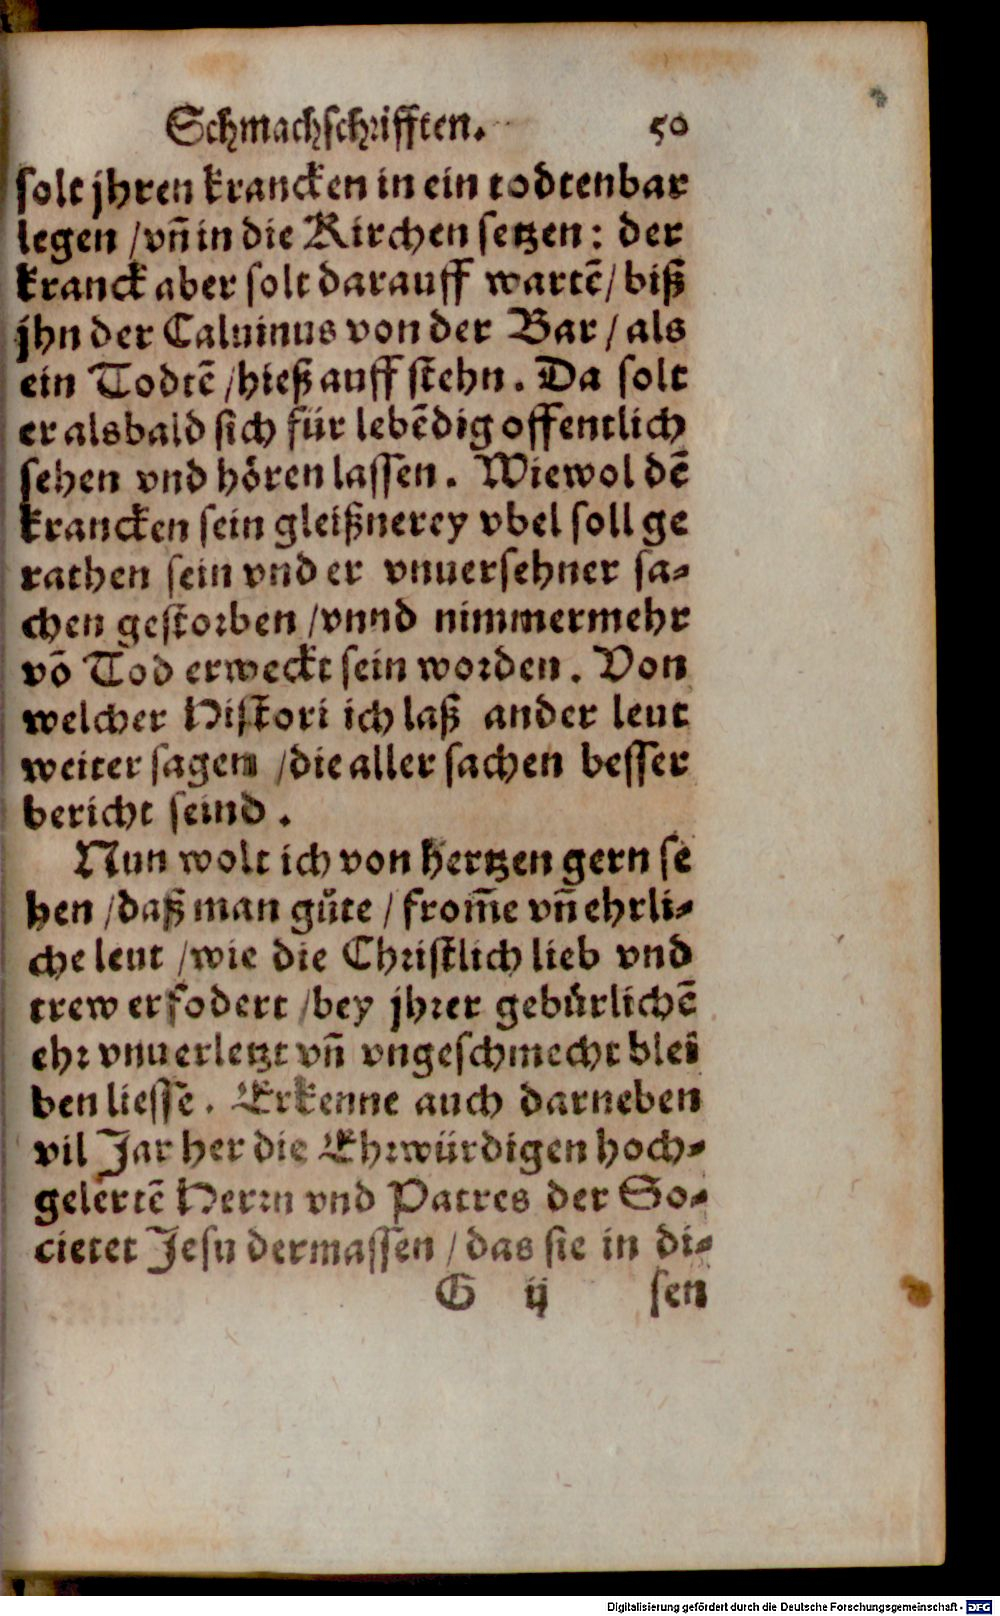 Schmachschrifften. 50
solt jhren krancken in ein todtenbar
legen /vñ in die Kirchen setzen: der
kranck aber solt darauff wartẽ/ biß
jhn der Caluinus von der Bar / als
ein Todtẽ /hieß auff stehn. Da solt
er alsbald sich für lebẽdig offentlich
sehen vnd hören lassen. Wiewol dẽ
krancken sein gleißnerey vbel soll ge
rathen sein vnd er vnuersehner sa-
chen gestorben /vnnd nimmermehr
võ Tod erweckt sein worden. Von
welcher Histori ich laß ander leut
weiter sagen /die aller sachen besser
bericht seind.
Nun wolt ich von hertzen gern se
hen /daß man gůte / from̃e vñ ehrli-
che leut /wie die Christlich lieb vnd
trew erfodert /bey jhrer gebürlichẽ
ehr vnuerletzt vñ vngeschmecht blei
ben liesse. Erkenne auch darneben
vil Jar her die Ehrwürdigen hoch-
gelertẽ Herrn vnd Patres der So-
cietet Jesu dermassen / das sie in di-
G ij sen
Digitalisierung gefördert durch die Deutsche Forschungsgemeinschaft - DFG